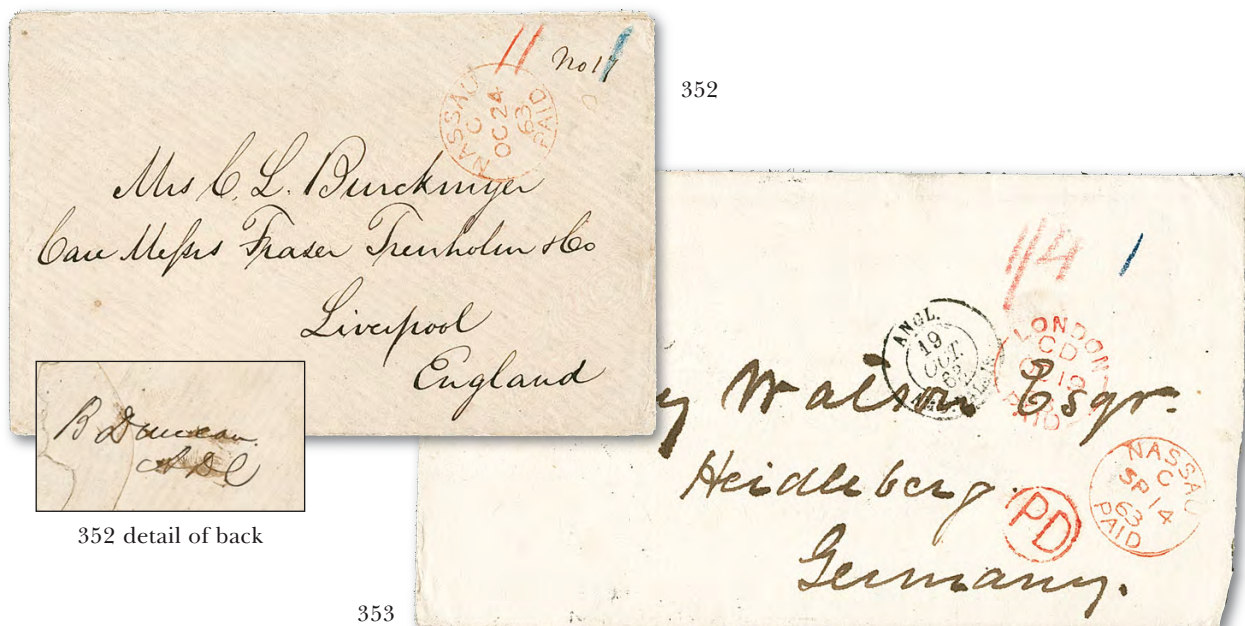 No 1
NASSAU
C
OC 24
63
PAID
Mrs C. L. Burckmyer
Care Messrs Fraser Trenholm & Co
Liverpool
England
352
B Duncan
ADC
352 detail of back
1
ANGL.
19
OCT.
63
LONDON
CD
OC 19
PAID
y Walson Esqr.
Heidleberg.
Germany.
PD
NASSAU
C
SP 14
63
PAID
353